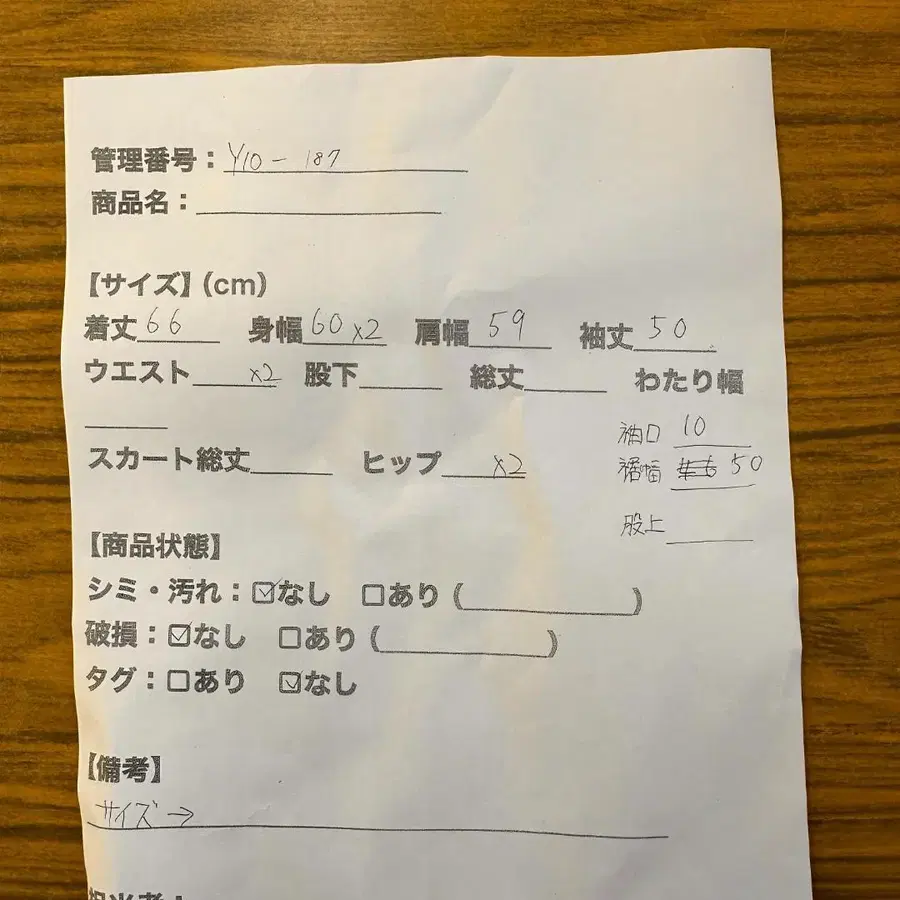 管理番号：Y10-187
商品名：
【サイズ】（cm）
着丈66 身幅60x2 肩幅59 袖丈50
ウエスト x2 股下 総丈 わたり幅
袖口 10
スカート総丈 ヒップ x2
裾幅 50
股上
【商品状態】
シミ・汚れ：☑なし □あり（ ）
破損：☑なし □あり（ ）
タグ：□あり ☑なし
【備考】
サイズ→